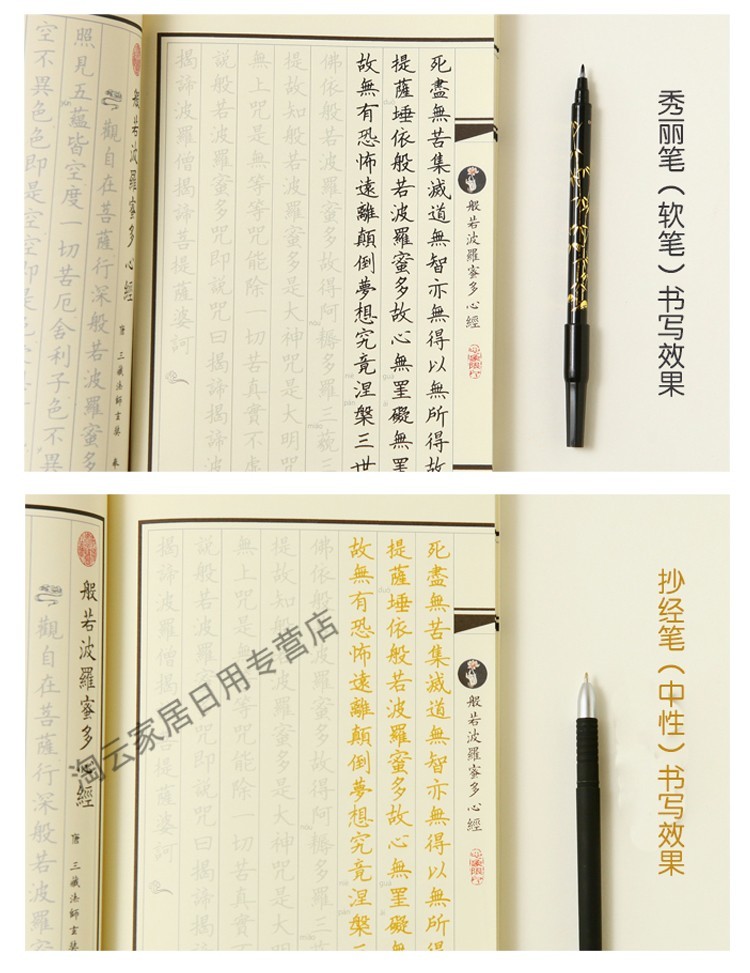 秀丽笔（软笔）书写效果
般若波羅蜜多心經
死盡無苦集滅道無智亦無得以無所得故
提薩埵依般若波羅蜜多故心無罣礙無罣
故無有恐怖遠離顛倒夢想究竟涅槃三世
佛依般若波羅蜜多故得阿耨多羅三藐三
提故知般若波羅蜜多是大神咒是大明咒
無上咒是無等等咒能除一切苦真實不虛
說般若波羅蜜多咒即說咒曰揭諦揭諦波
揭諦波羅僧揭諦菩提薩婆訶
般若波羅蜜多心經 唐 三藏法師玄奘
觀自在菩薩行深般若波羅蜜多
照見五蘊皆空度一切苦厄舍利子色不異
空不異色色即是空空即是色
抄经笔（中性）书写效果
般若波羅蜜多心經
死盡無苦集滅道無智亦無得以無所得
提薩埵依般若波羅蜜多故心無罣礙無
故無有恐怖遠離顛倒夢想究竟涅槃三
佛依般若波羅蜜多故得阿耨多羅三藐
提故知般若波羅蜜多是大神咒是大明
無上咒是
說般若波羅蜜多咒即說咒曰揭諦揭諦
揭諦波羅僧揭諦菩提薩婆訶
般若波羅蜜多心經
唐 三藏法師玄奘
觀自在菩薩行深般若波羅
淘云家居日用专营店